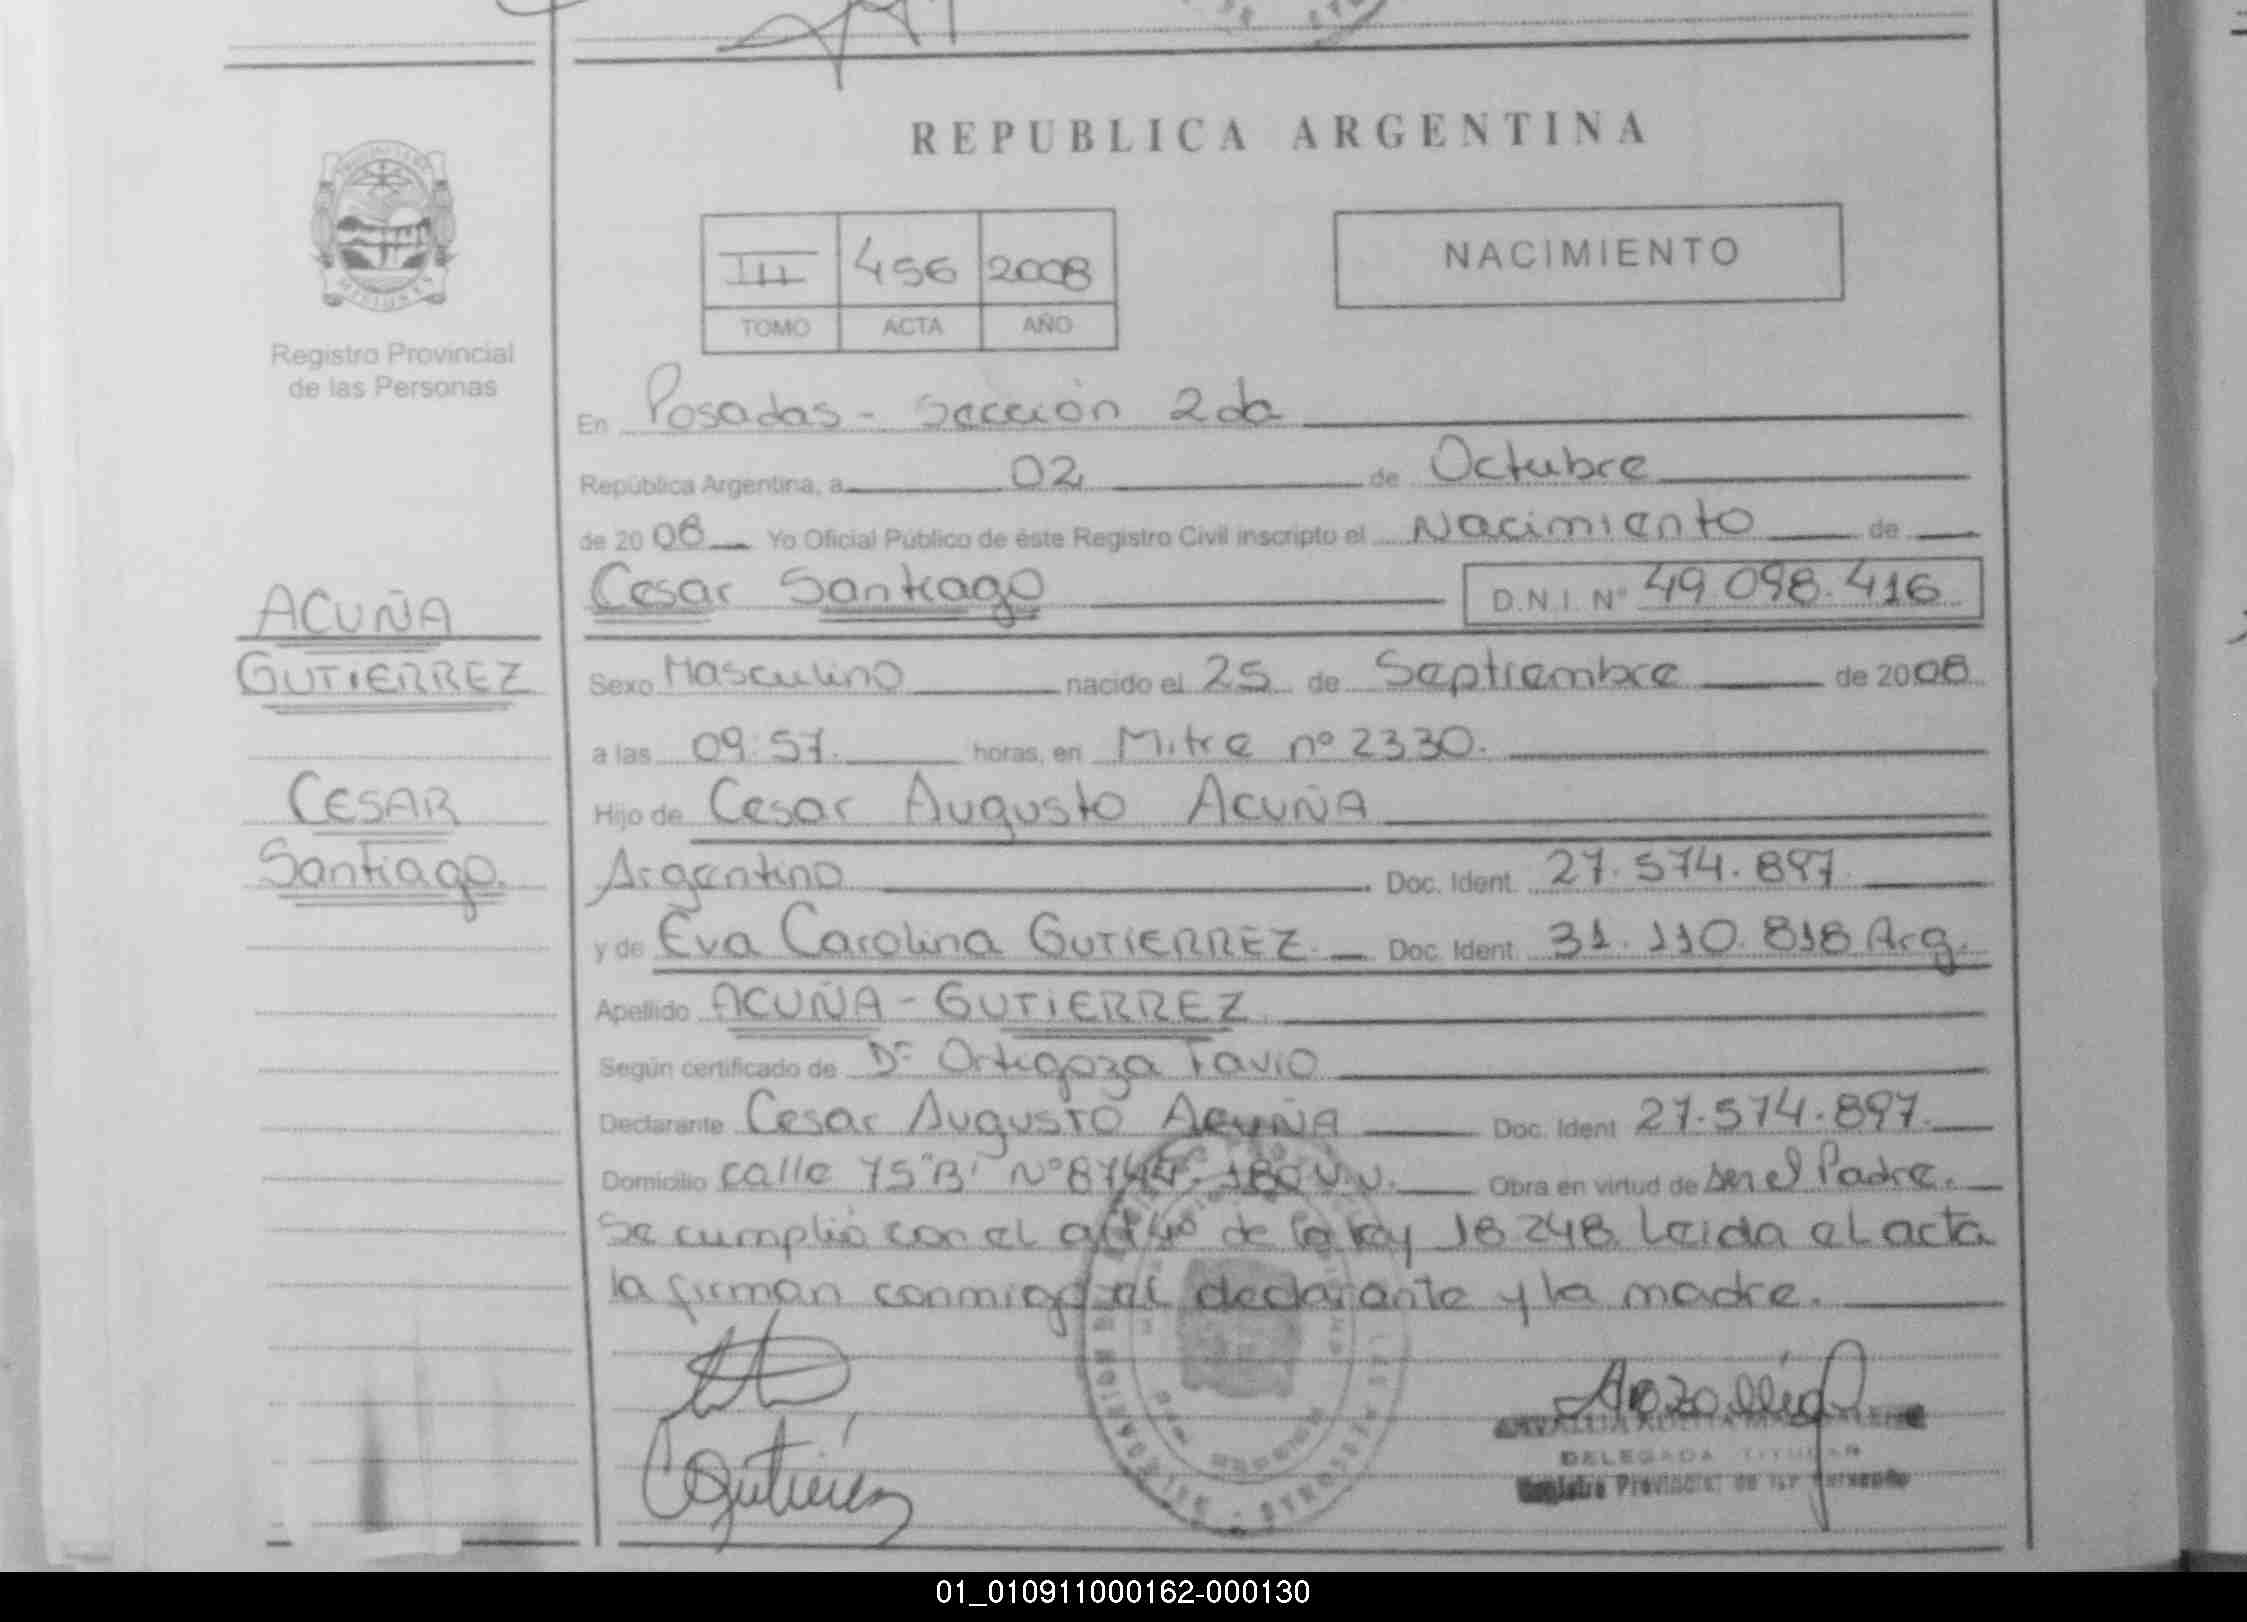 REPUBLICA ARGENTINA
MISIONES
Registro Provincial
de las Personas
III 456 2008
TOMO ACTA AÑO
NACIMIENTO
En Posadas - Sección 2da
República Argentina, a 02 de Octubre
de 2008 Yo Oficial Público de éste Registro Civil inscripto el Nacimiento de
Cesar Santiago D.N.I. Nº 49.098.416
ACUÑA
GUTIERREZ
CESAR
Santiago.
Sexo Masculino nacido el 25 de Septiembre de 2008
a las 09:57. horas, en Mitre nº 2330.
Hijo de Cesar Augusto ACUÑA
Argentino Doc. Ident. 27.574.897.
y de Eva Carolina GUTIERREZ. Doc. Ident. 31.110.818 Arg.
Apellido ACUÑA - GUTIERREZ
Según certificado de Dr Ortigoza Favio
Declarante Cesar Augusto ACUÑA Doc. Ident 27.574.897.
Domicilio calle 75"B" Nº Obra en virtud de ser el Padre.
Se cumplió con el de la ley 18.248. Leida el acta
la firman conmigo el declarante y la madre.
CGutierrez
DELEGADA TITULAR
Registro Provincial de las Personas
01_010911000162-000130